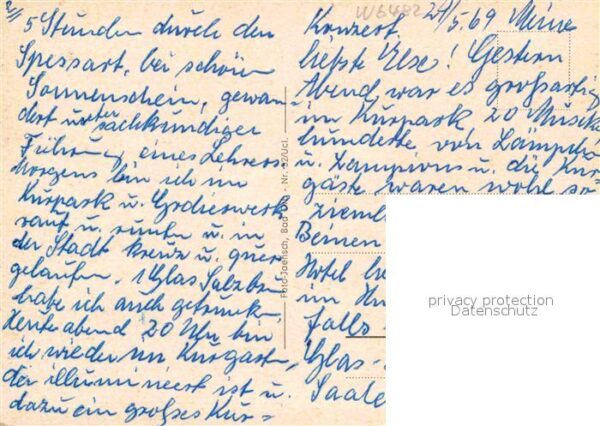 2)
5 Stunden durch den
Spessart, bei schönem
Sonnenschein, gewan
dert unter sachkundiger
Führung eines Lehrers.
Morgens bin ich im
Kurpark u. Gradierwerk
rauf u. runter u. in
der Stadt kreuz u. quer
gelaufen. 1 Glas
habe ich auch getrunken.
Heute abend 20 Uhr bin
ich wieder im Kurgarten,
der illuminiert ist u.
dazu ein großes Kur=
Foto-Jaensch, Bad Orb - Nr. 32/Ucl.
W6482
Konzert. 24/5.69 Meine
liebste Else! Gestern
Abend war es großartig
im Kurpark 20 Musik
hunderte von Lämpch
u. Lampions u. die Kur
gäste waren wohl so
zieml
Beinen
Hotel
im
falls
Glas
Saale
privacy protection
Datenschutz